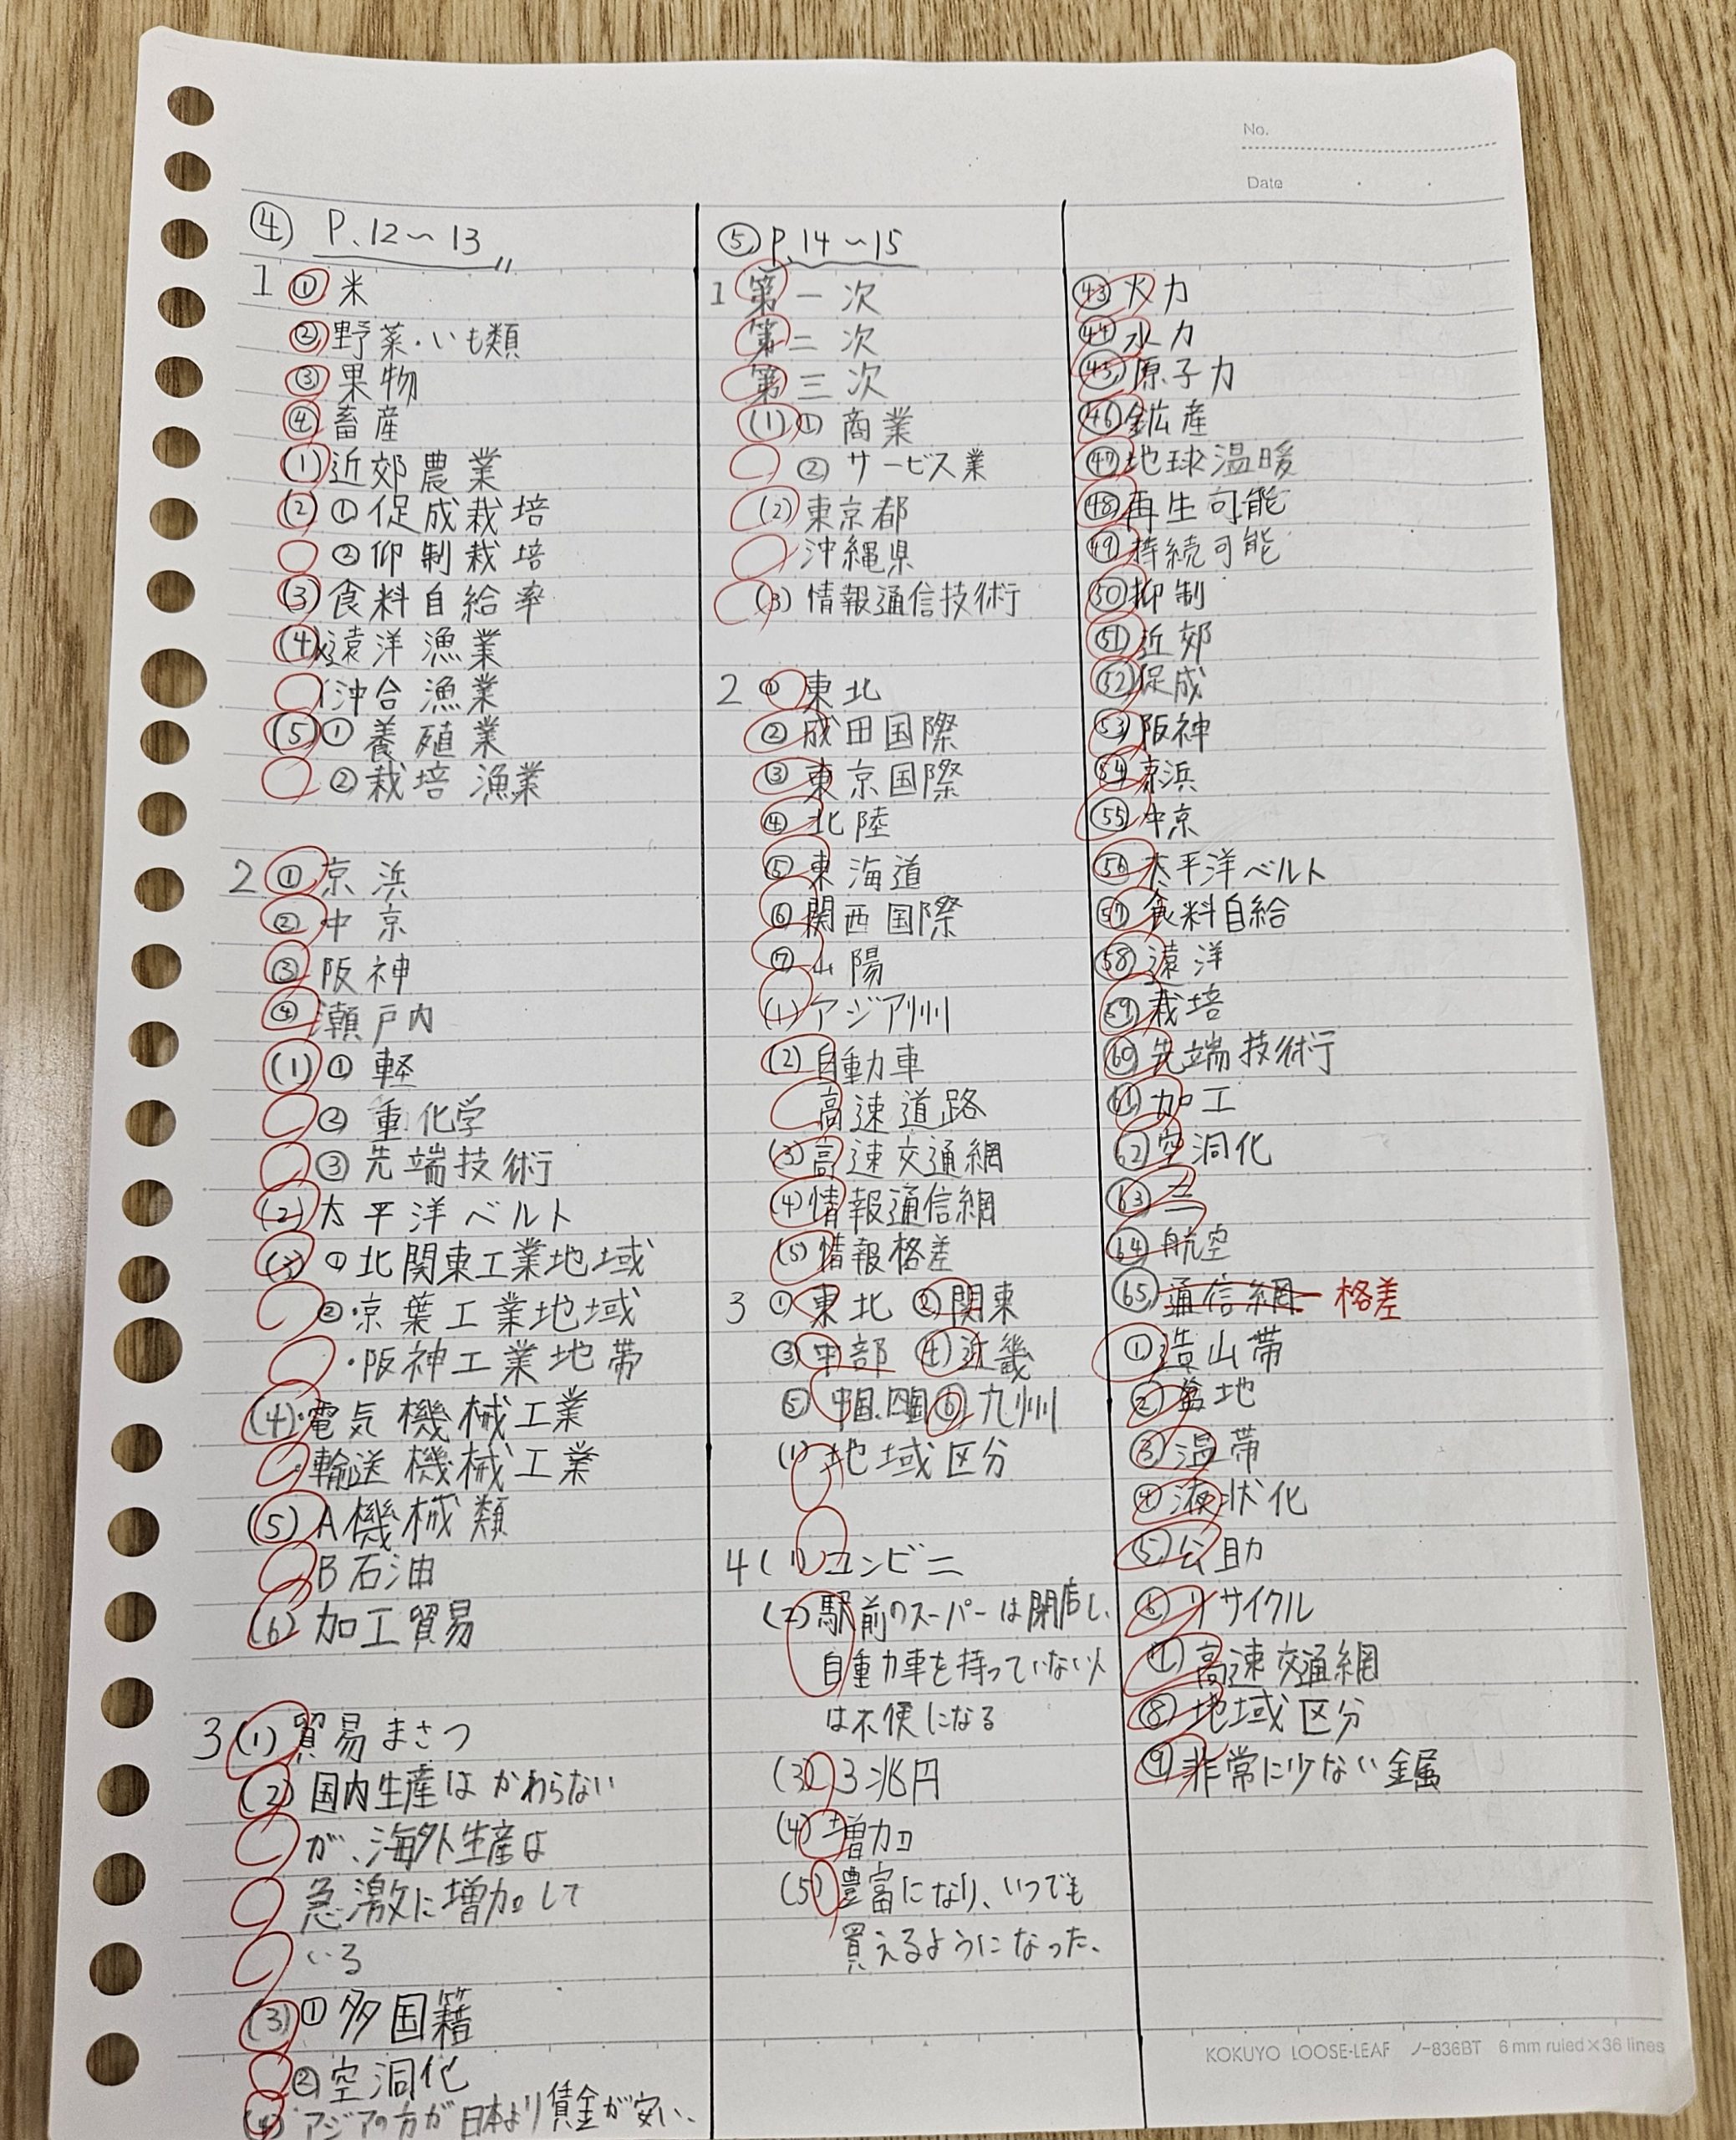 No.
Date
④ P.12～13
1 ① 米
② 野菜・いも類
③ 果物
④ 畜産
(1) 近郊農業
(2) ① 促成栽培
② 抑制栽培
(3) 食料自給率
(4) 遠洋漁業
沖合漁業
(5) ① 養殖業
② 栽培漁業
2 ① 京浜
② 中京
③ 阪神
④ 瀬戸内
(1) ① 軽
② 重化学
③ 先端技術
(2) 太平洋ベルト
(3) ① 北関東工業地域
② ・京葉工業地域
・阪神工業地帯
(4) ・電気機械工業
・輸送機械工業
(5) A 機械類
B 石油
(6) 加工貿易
3 (1) 貿易まさつ
(2) 国内生産はかわらない
が、海外生産は
急激に増加して
いる
(3) ① 多国籍
② 空洞化
(4) アジアの方が日本より賃金が安い、
⑤ P.14～15
1 第一次
第二次
第三次
(1) ① 商業
② サービス業
(2) 東京都
沖縄県
(3) 情報通信技術
2 ① 東北
② 成田国際
③ 東京国際
④ 北陸
⑤ 東海道
⑥ 関西国際
⑦ 山陽
(1) アジア州
(2) 自動車
高速道路
(3) 高速交通網
(4) 情報通信網
(5) 情報格差
3 ① 東北 ② 関東
③ 中部 ④ 近畿
⑤ 中国、四国 ⑥ 九州
(1) 地域区分
4 (1) コンビニ
(2) 駅前のスーパーは閉店し、
自動車を持っていない人
は不便になる
(3) 3兆円
(4) 増加
(5) 豊富になり、いつでも
買えるようになった、
㊸ 火力
㊹ 水力
㊺ 原子力
㊻ 鉱産
㊼ 地球温暖
㊽ 再生可能
㊾ 持続可能
㊿ 抑制
51 近郊
52 促成
53 阪神
54 京浜
55 中京
56 太平洋ベルト
57 食料自給
58 遠洋
59 栽培
60 先端技術
61 加工
62 空洞化
63 三
64 航空
65 通信網 格差
① 造山帯
② 盆地
③ 温帯
④ 液状化
⑤ 公助
⑥ リサイクル
⑦ 高速交通網
⑧ 地域区分
⑨ 非常に少ない金属
KOKUYO LOOSE-LEAF ノ-836BT 6mm ruled×36 lines